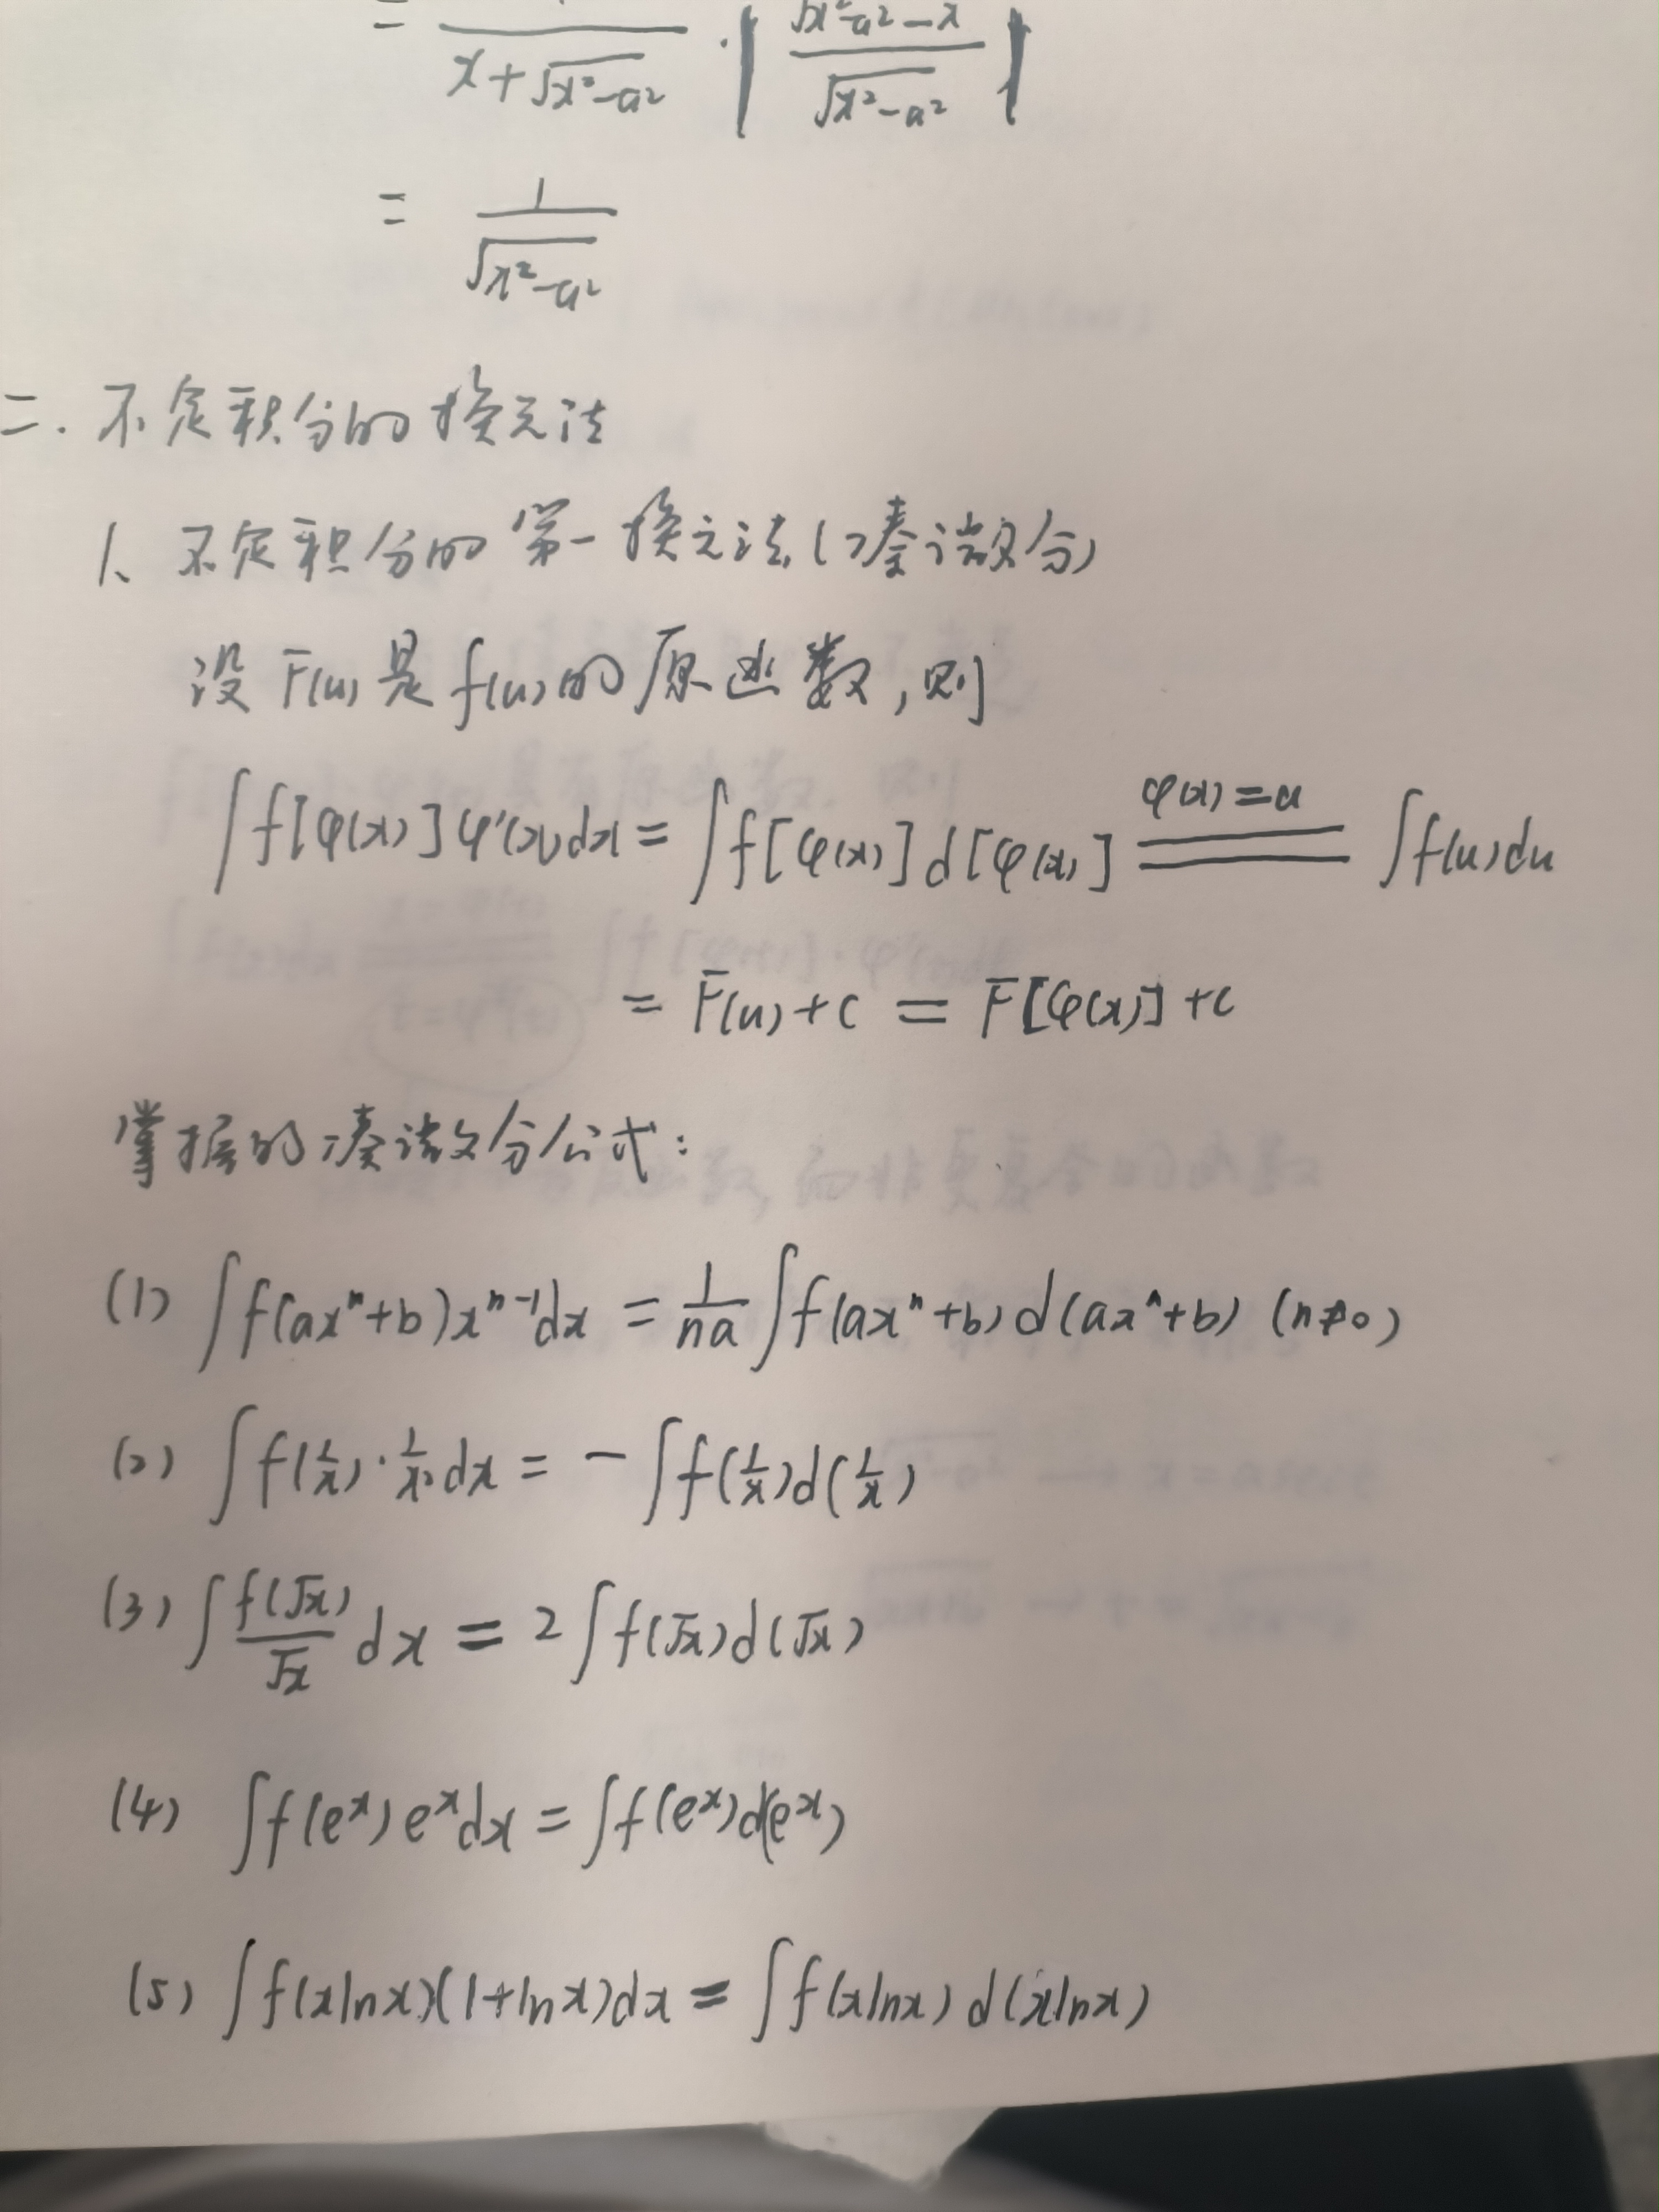 = 1/(x+√(x²-a²)) · | (√(x²-a²) - x)/√(x²-a²) |
= 1/√(x²-a²)
二. 不定积分的换元法
1、不定积分的第一换元法(凑微分)
设 F(u) 是 f(u) 的原函数, 则
∫f[φ(x)]φ'(x)dx = ∫f[φ(x)]d[φ(x)] ══(φ(x)=u)══ ∫f(u)du
= F(u)+C = F[φ(x)]+C
掌握的凑微分公式:
(1) ∫f(axⁿ+b)xⁿ⁻¹dx = 1/(na) ∫f(axⁿ+b)d(axⁿ+b) (n≠0)
(2) ∫f(1/x)·1/x² dx = -∫f(1/x)d(1/x)
(3) ∫f(√x)/√x dx = 2∫f(√x)d(√x)
(4) ∫f(eˣ)eˣdx = ∫f(eˣ)d(eˣ)
(5) ∫f(xlnx)(1+lnx)dx = ∫f(xlnx)d(xlnx)